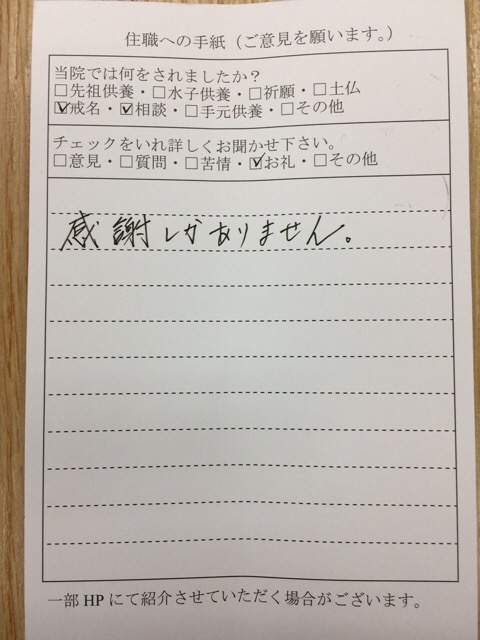 住職への手紙（ご意見を願います。）
当院では何をされましたか？
□先祖供養・□水子供養・□祈願・□土仏
☑戒名・☑相談・□手元供養・□その他
チェックをいれ詳しくお聞かせ下さい。
□意見・□質問・□苦情・☑お礼・□その他
感謝しかありません。
一部HPにて紹介させていただく場合がございます。